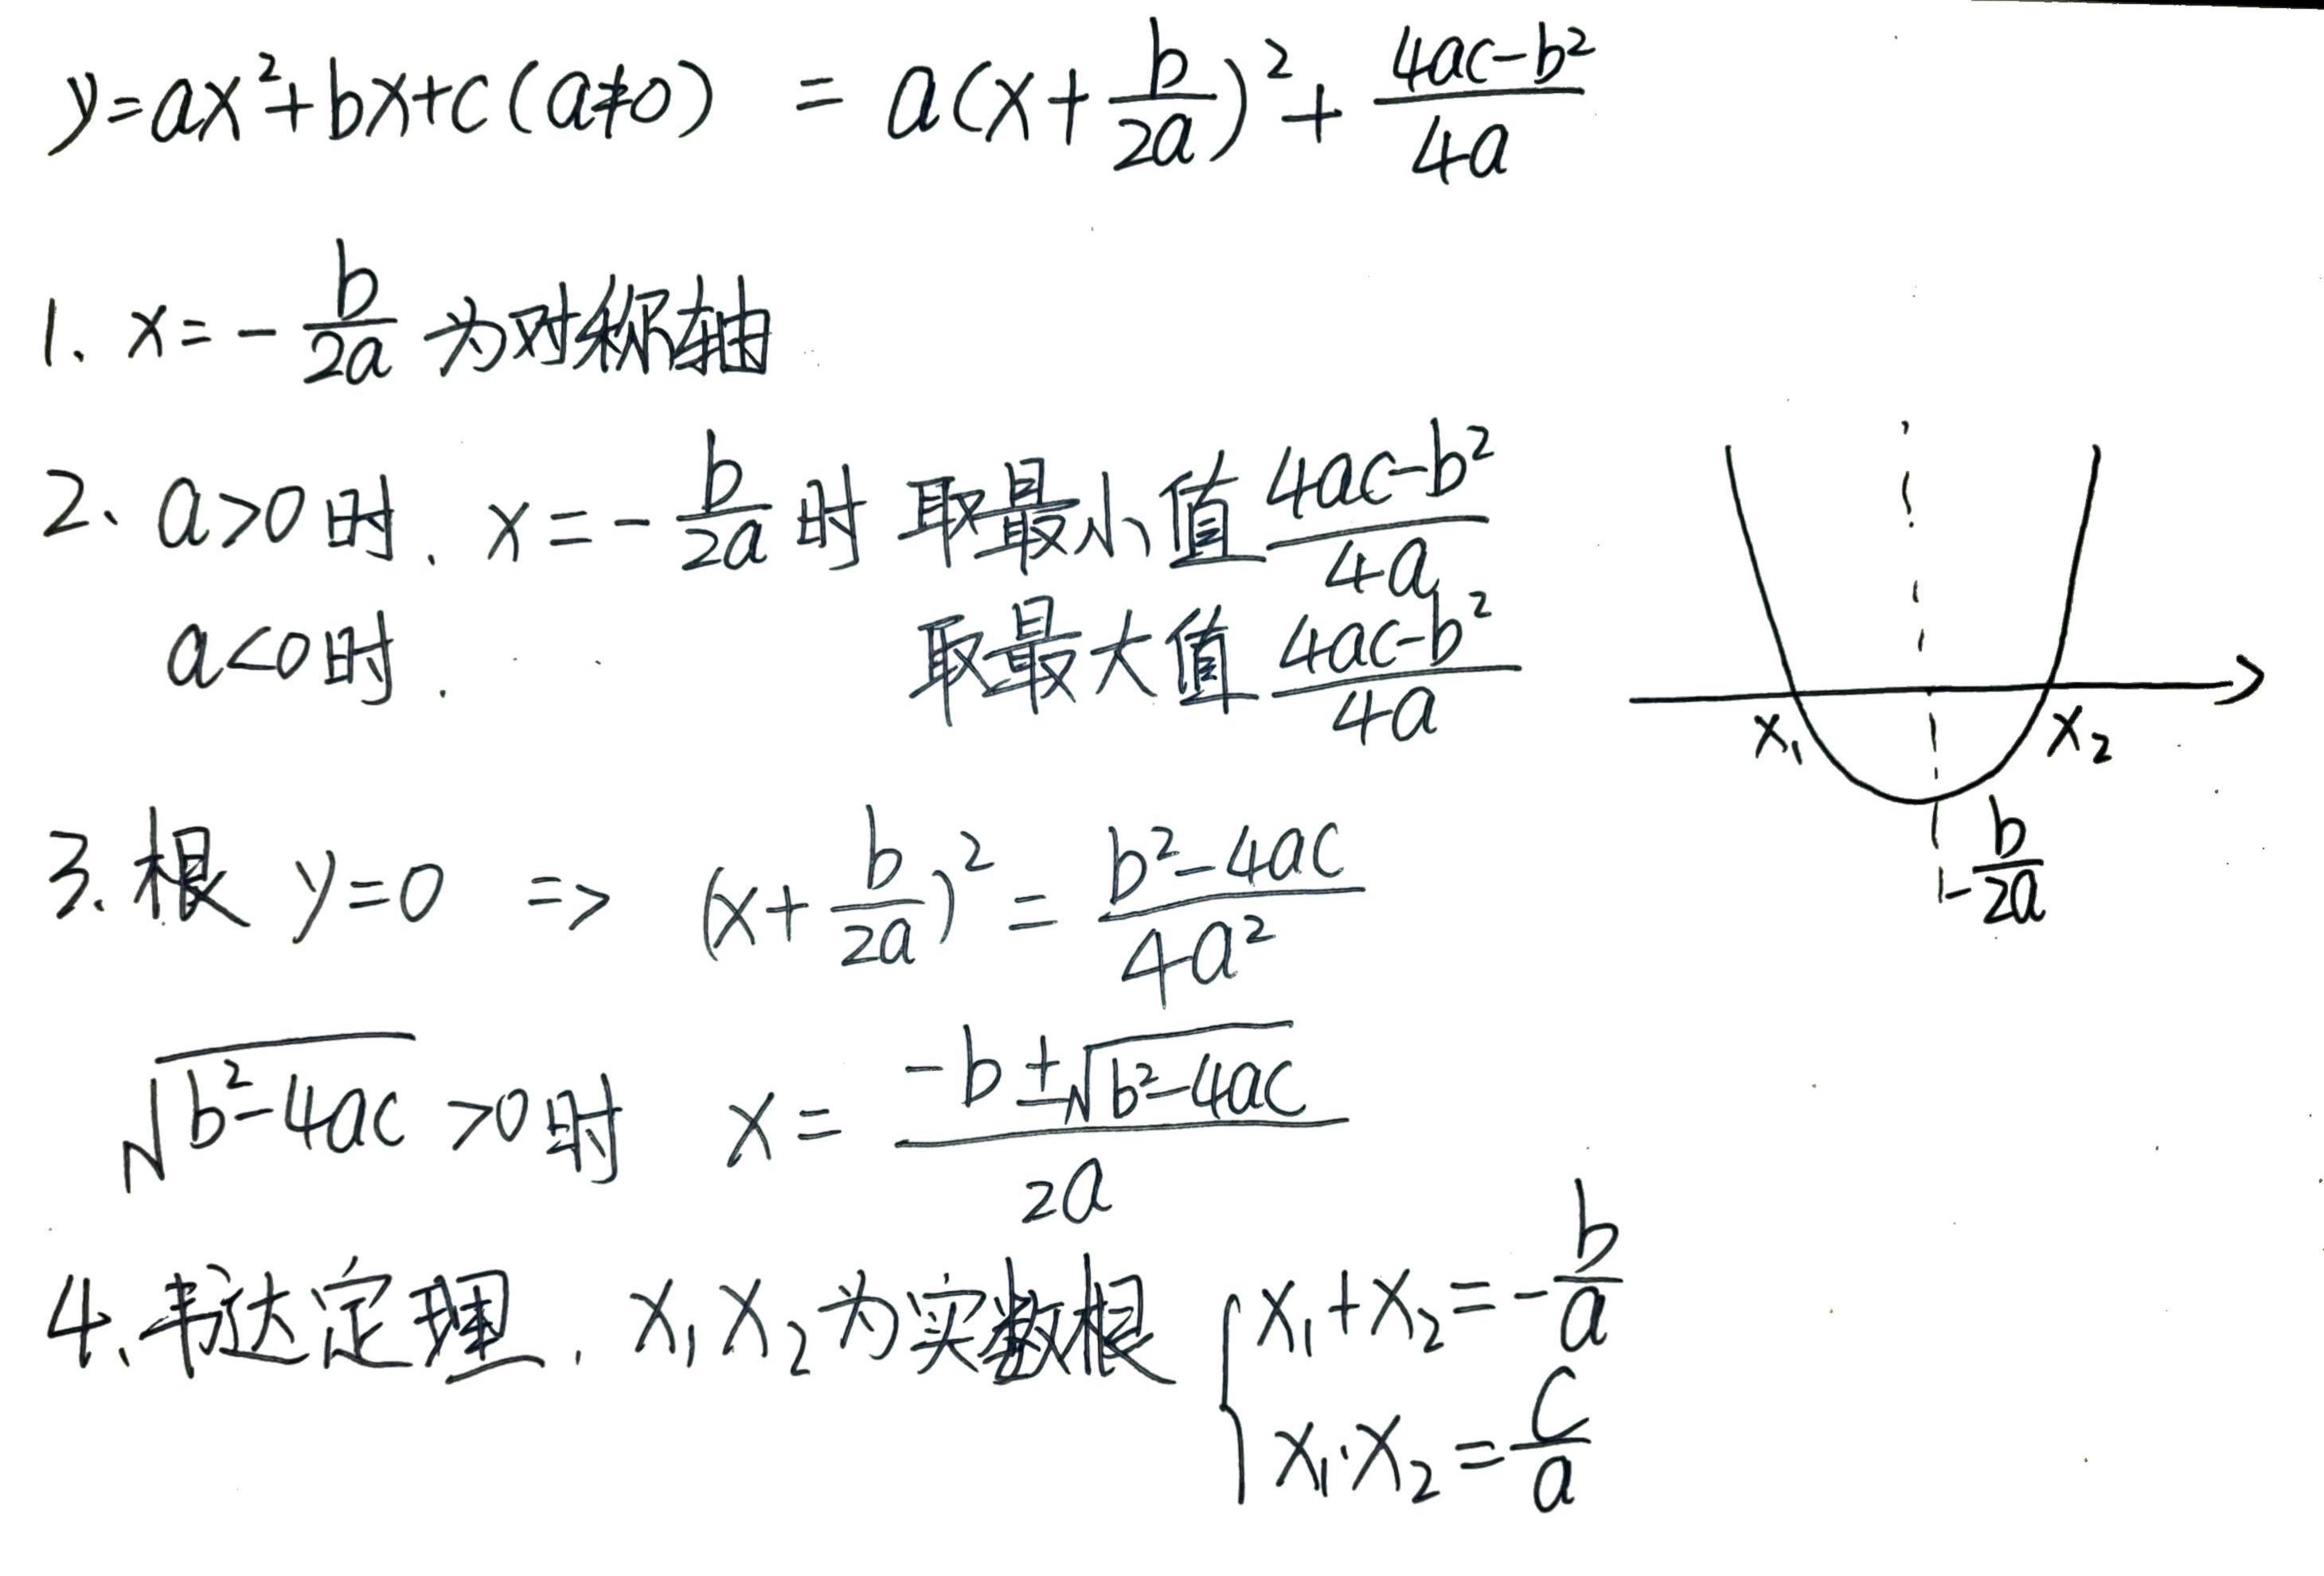 y=ax²+bx+c(a≠0) = a(x+b/2a)²+(4ac-b²)/4a
1、x=-b/2a为对称轴
2、a>0时, x=-b/2a时 取最小值(4ac-b²)/4a
a<0时, 取最大值(4ac-b²)/4a
x₁ x₂
-b/2a
3、根 y=0 => (x+b/2a)²=(b²-4ac)/4a²
√(b²-4ac) >0时 x=(-b±√(b²-4ac))/2a
4、韦达定理, x₁x₂为实数根 { x₁+x₂=-b/a
x₁·x₂=c/a